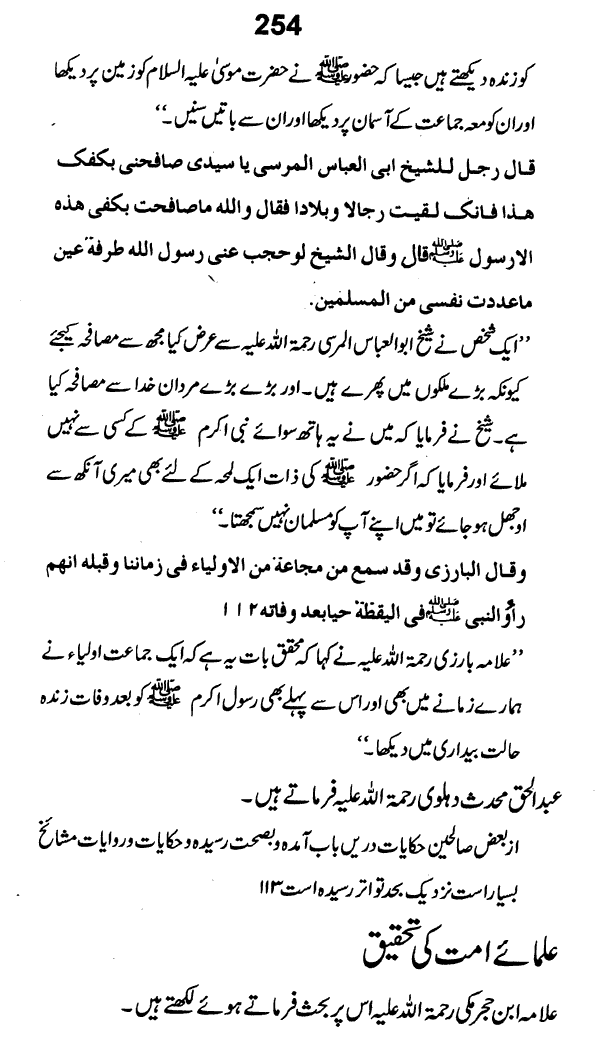 254
کو زندہ دیکھتے ہیں جیسا کہ حضور ﷺ نے حضرت موسیٰ علیہ السلام کو زمین پر دیکھا
اور ان کو معہ جماعت کے آسمان پر دیکھا اور ان سے باتیں سنیں۔‘‘
قال رجل للشیخ ابی العباس المرسی یا سیدی صافحنی بکفک
ھذا فانک لقیت رجالا وبلادا فقال واللہ ماصافحت بکفی ھذہ
الارسول ﷺ قال وقال الشیخ لوحجب عنی رسول اللہ طرفۃ عین
ماعددت نفسی من المسلمین.
’’ایک شخص نے شیخ ابوالعباس المرسی رحمۃ اللہ علیہ سے عرض کیا مجھ سے مصافحہ کیجئے
کیونکہ بڑے ملکوں میں پھرے ہیں۔ اور بڑے بڑے مردان خدا سے مصافحہ کیا
ہے۔ شیخ نے فرمایا کہ میں نے یہ ہاتھ سوائے نبی اکرم ﷺ کے کسی سے نہیں
ملائے اور فرمایا کہ اگر حضور ﷺ کی ذات ایک لمحہ کے لئے بھی میری آنکھ سے
اوجھل ہو جائے تو میں اپنے آپ کو مسلمان نہیں سمجھتا۔‘‘
وقال البارزی وقد سمع من مجاعۃ من الاولیاء فی زماننا وقبلہ انھم
رأو النبی ﷺ فی الیقظۃ حیابعد وفاتہ ۱۱۲
’’علامہ بارزی رحمۃ اللہ علیہ نے کہا کہ محقق بات یہ ہے کہ ایک جماعت اولیاء نے
ہمارے زمانے میں بھی اور اس سے پہلے بھی رسول اکرم ﷺ کو بعد وفات زندہ
حالت بیداری میں دیکھا۔‘‘
عبدالحق محدث دہلوی رحمۃ اللہ علیہ فرماتے ہیں۔
از بعض صالحین حکایات دریں باب آمدہ وبصحت رسیدہ و حکایات و روایات مشائخ
بسیار است نزدیک بحد تواتر رسیدہ است ۱۱۳
علمائے امت کی تحقیق
علامہ ابن حجر مکی رحمۃ اللہ علیہ اس پر بحث فرماتے ہوئے لکھتے ہیں۔